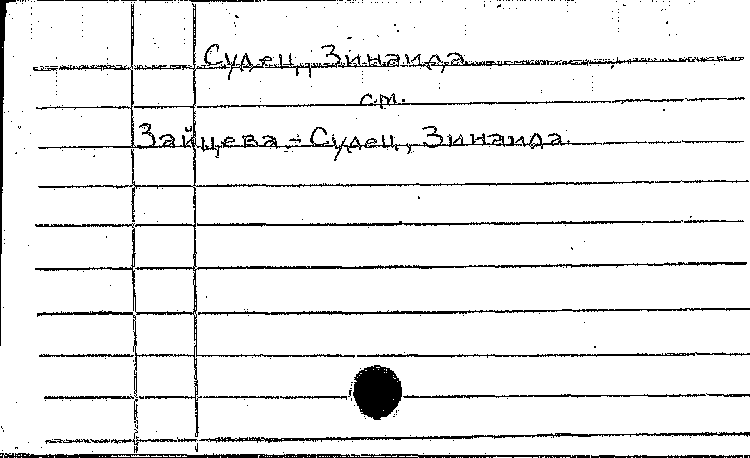 Судец, Зинаида
см.
Зайцева-Судец, Зинаида